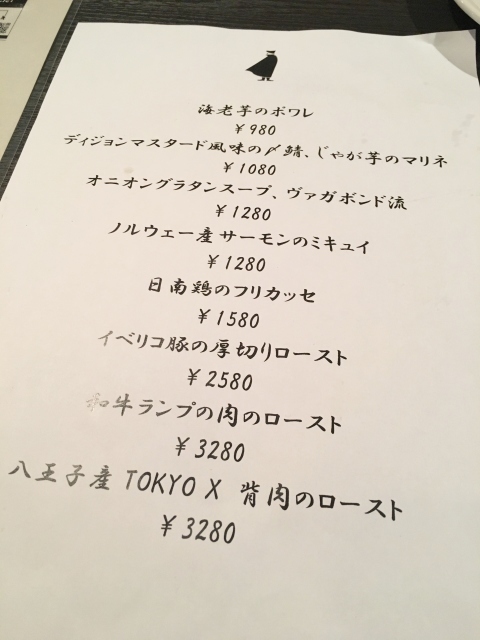 海老芋のポワレ
¥980
ディジョンマスタード風味の〆鯖、じゃが芋のマリネ
¥1080
オニオングラタンスープ、ヴァガボンド流
¥1280
ノルウェー産サーモンのミキュイ
¥1280
日南鶏のフリカッセ
¥1580
イベリコ豚の厚切りロースト
¥2580
和牛ランプの肉のロースト
¥3280
八王子産 TOKYO X 背肉のロースト
¥3280